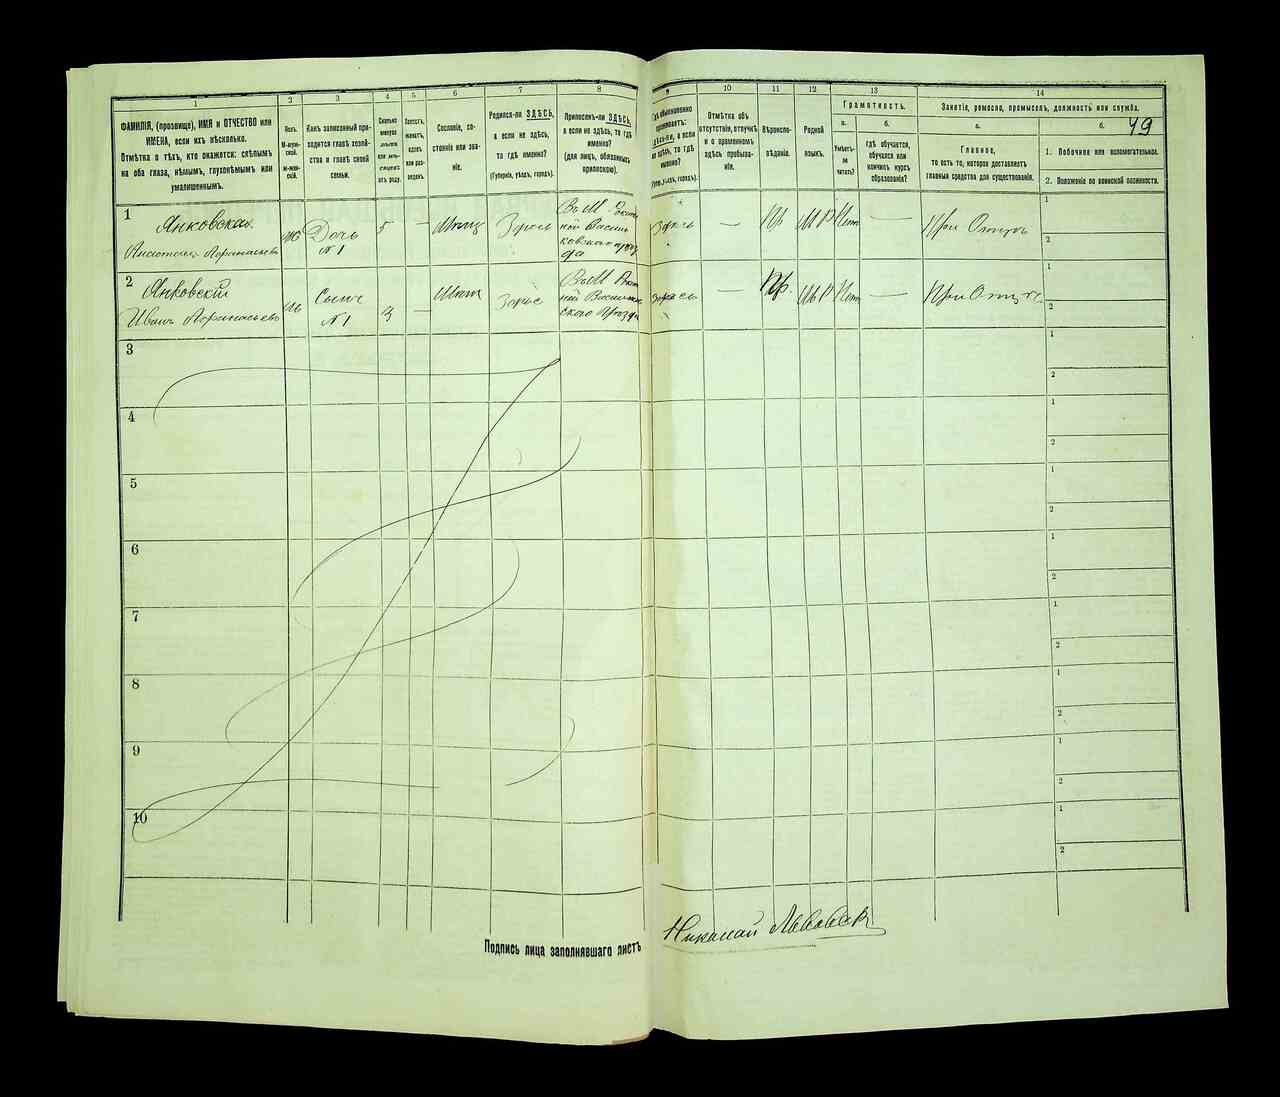 1
2
3
4
5
6
7
8
9
10
11
12
13
14
ФАМИЛІЯ, (прозвище), ИМЯ и ОТЧЕСТВО или
ИМЕНА, если ихъ нѣсколько.
Отмѣтка о тѣхъ, кто окажется: слѣпымъ
на оба глаза, нѣмымъ, глухонѣмымъ или
умалишеннымъ.
Полъ.
М-муж-
ской.
Ж-жен-
скій.
Какъ записанный при-
ходится главѣ хозяй-
ства и главѣ своей
семьи.
Сколько
минуло
лѣтъ
или мѣ-
сяцевъ
отъ роду.
Холостъ,
женатъ,
вдовъ
или раз-
веденъ
Сословіе, со-
стояніе или зва-
ніе.
Родился-ли ЗДѢСЬ,
а если не здѣсь,
то гдѣ именно?
(Губернія, уѣздъ, городъ).
Приписанъ-ли ЗДѢСЬ,
а если не здѣсь, то гдѣ
именно?
(для лицъ, обязанныхъ
припискою).
Гдѣ обыкновенно
проживаетъ:
здѣсь-ли, а если
не здѣсь, то гдѣ
именно?
(Губ., уѣздъ, городъ).
Отмѣтка объ
отсутствіи, отлучкѣ
и о временномъ
здѣсь пребыва-
ніи.
Вѣроиспо-
вѣданіе.
Родной
языкъ.
Грамотность.
а.
б.
Умѣетъ-
ли
читать?
гдѣ обучается,
обучался или
кончилъ курсъ
образованія?
Занятія, ремесло, промыселъ, должность или служба.
а.
б.
49
Главное,
то есть то, которое доставляетъ
главныя средства для существованія.
1. Побочное или вспомогательное.
2. Положеніе по воинской повинности.
1
Янковская
Афанасьева
Ж
Дочь
№ 1
5
—
Здѣсь
Въ М.
Здѣсь
—
Пр
М Р
Нет
—
При Отцѣ
1
2
2
Янковскій
Иванъ Афанасьевъ
М
Сынъ
№ 1
3
—
Здѣсь
Въ М.
Здѣсь
—
Пр.
М Р
Нет
—
При Отцѣ
1
2
3
1
2
4
1
2
5
1
2
6
1
2
7
1
2
8
1
2
9
1
2
10
1
2
Подпись лица заполнявшаго листъ
Николай